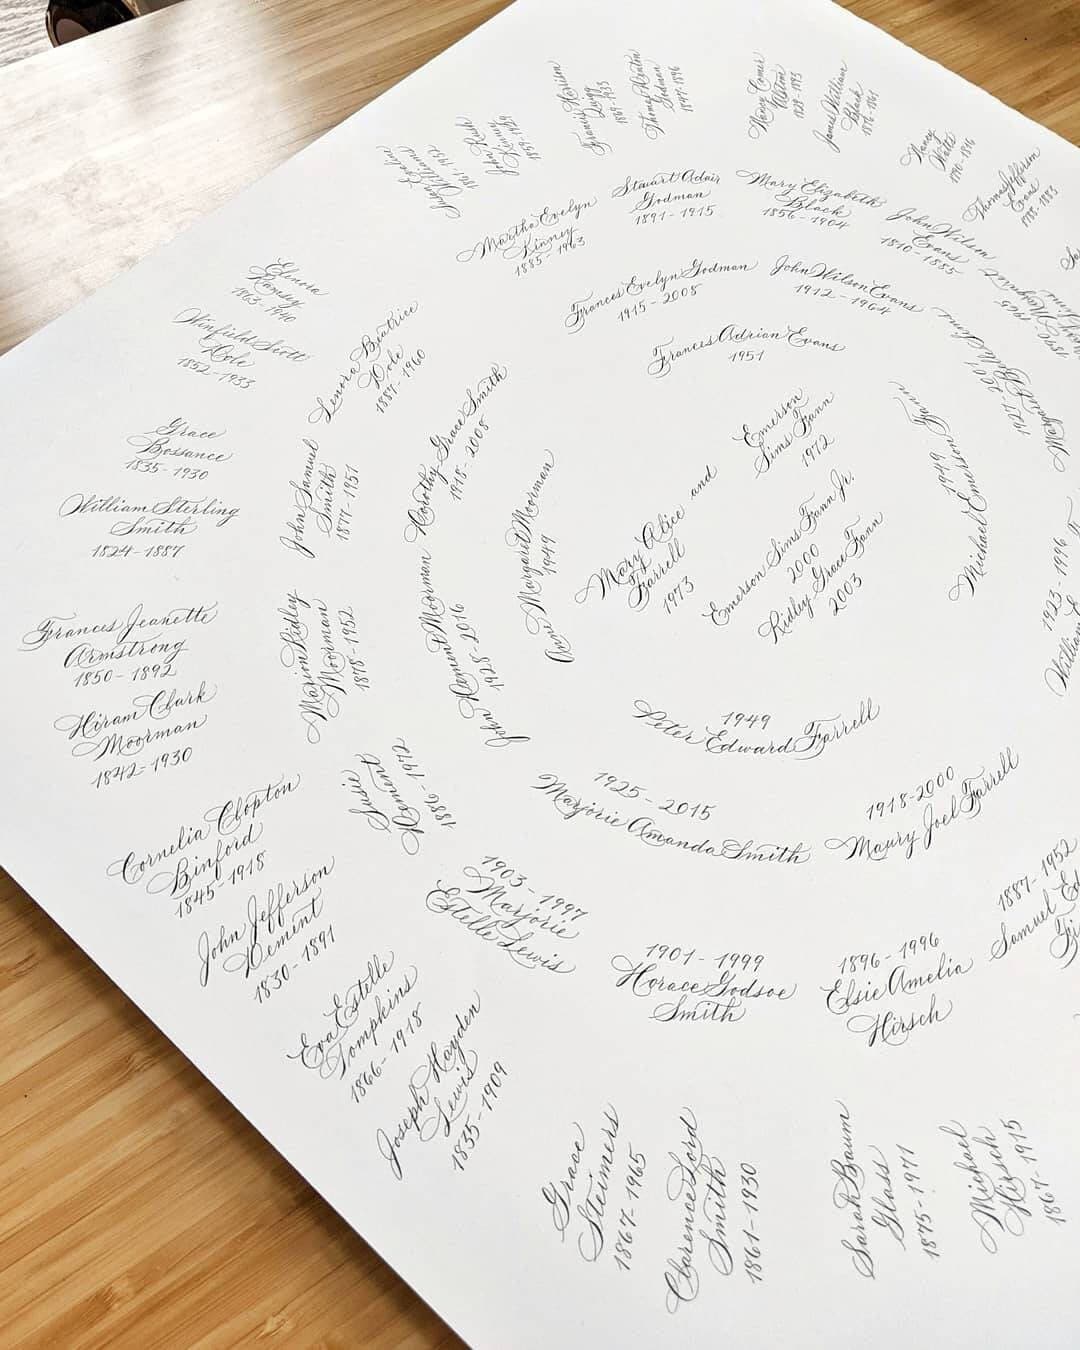 Mary Alice and
Ty
Farrell
1973
Emerson
Sims Fann
1972
Emerson Sims Fann Jr.
2000
Ridley Grace Fann
2003
Frances Adrian Evans
1951
1949
Michael Emerson Fann
1949
Peter Edward Farrell
Anne Margaret Moorman
1949
Frances Evelyn Godman
1915-2008
John Wilson Evans
1912-1964
1918-2000
Maury Joel Farrell
1925-2015
Marjorie Amanda Smith
John Dement Moorman
1928-2016
Dorothy Grace Smith
1918-2008
Martha Evelyn
Kinney
1885-1963
Stuart Adair
Godman
1891-1915
Mary Elizabeth
Black
1856-1904
John Wilson
Evans
1810-1855
1923-1996
1887-1952
Samuel
1896-1996
Elsie Amelia
Hirsch
1901-1999
Horace Godsoe
Smith
1903-1997
Marjorie
Estelle Lewis
Susie
Dement
1886-1972
Marion Ridley
Moorman
1878-1952
John Samuel
Smith
1877-1951
Lenora Beatrice
Dole
1887-1960
John Rush
Kinney
Francis
Thomas
Godman
1847-1896
Nancy Comer
1828-1893
James William
Black
Nancy
Watts
1790-1816
Thomas Jefferson
Evans
1788-1883
Elenora
Ramsey
1863-1940
Winfield Scott
Dole
1852-1933
Grace
Bossance
1835-1930
William Sterling
Smith
1824-1887
Frances Jeanette
Armstrong
1850-1892
Hiram Clark
Moorman
1842-1930
Cornelia Clopton
Binford
1845-1918
John Jefferson
Dement
1830-1891
Eva Estelle
Tompkins
1866-1918
Joseph Hayden
Lewis
1835-1909
Grace
Steimers
1867-1965
Clarence Lord
Smith
1861-1930
Sarah Baum
Glass
1875-1971
Michael
Hirsch
1867-1915